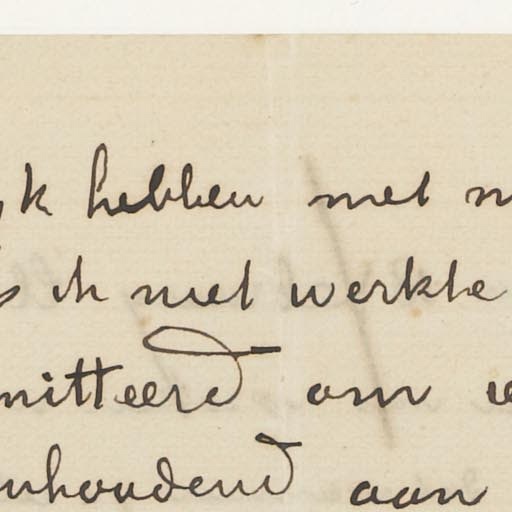 yk hebben met m
s ik niet werkte
mitteerd om u
nhoudend aan